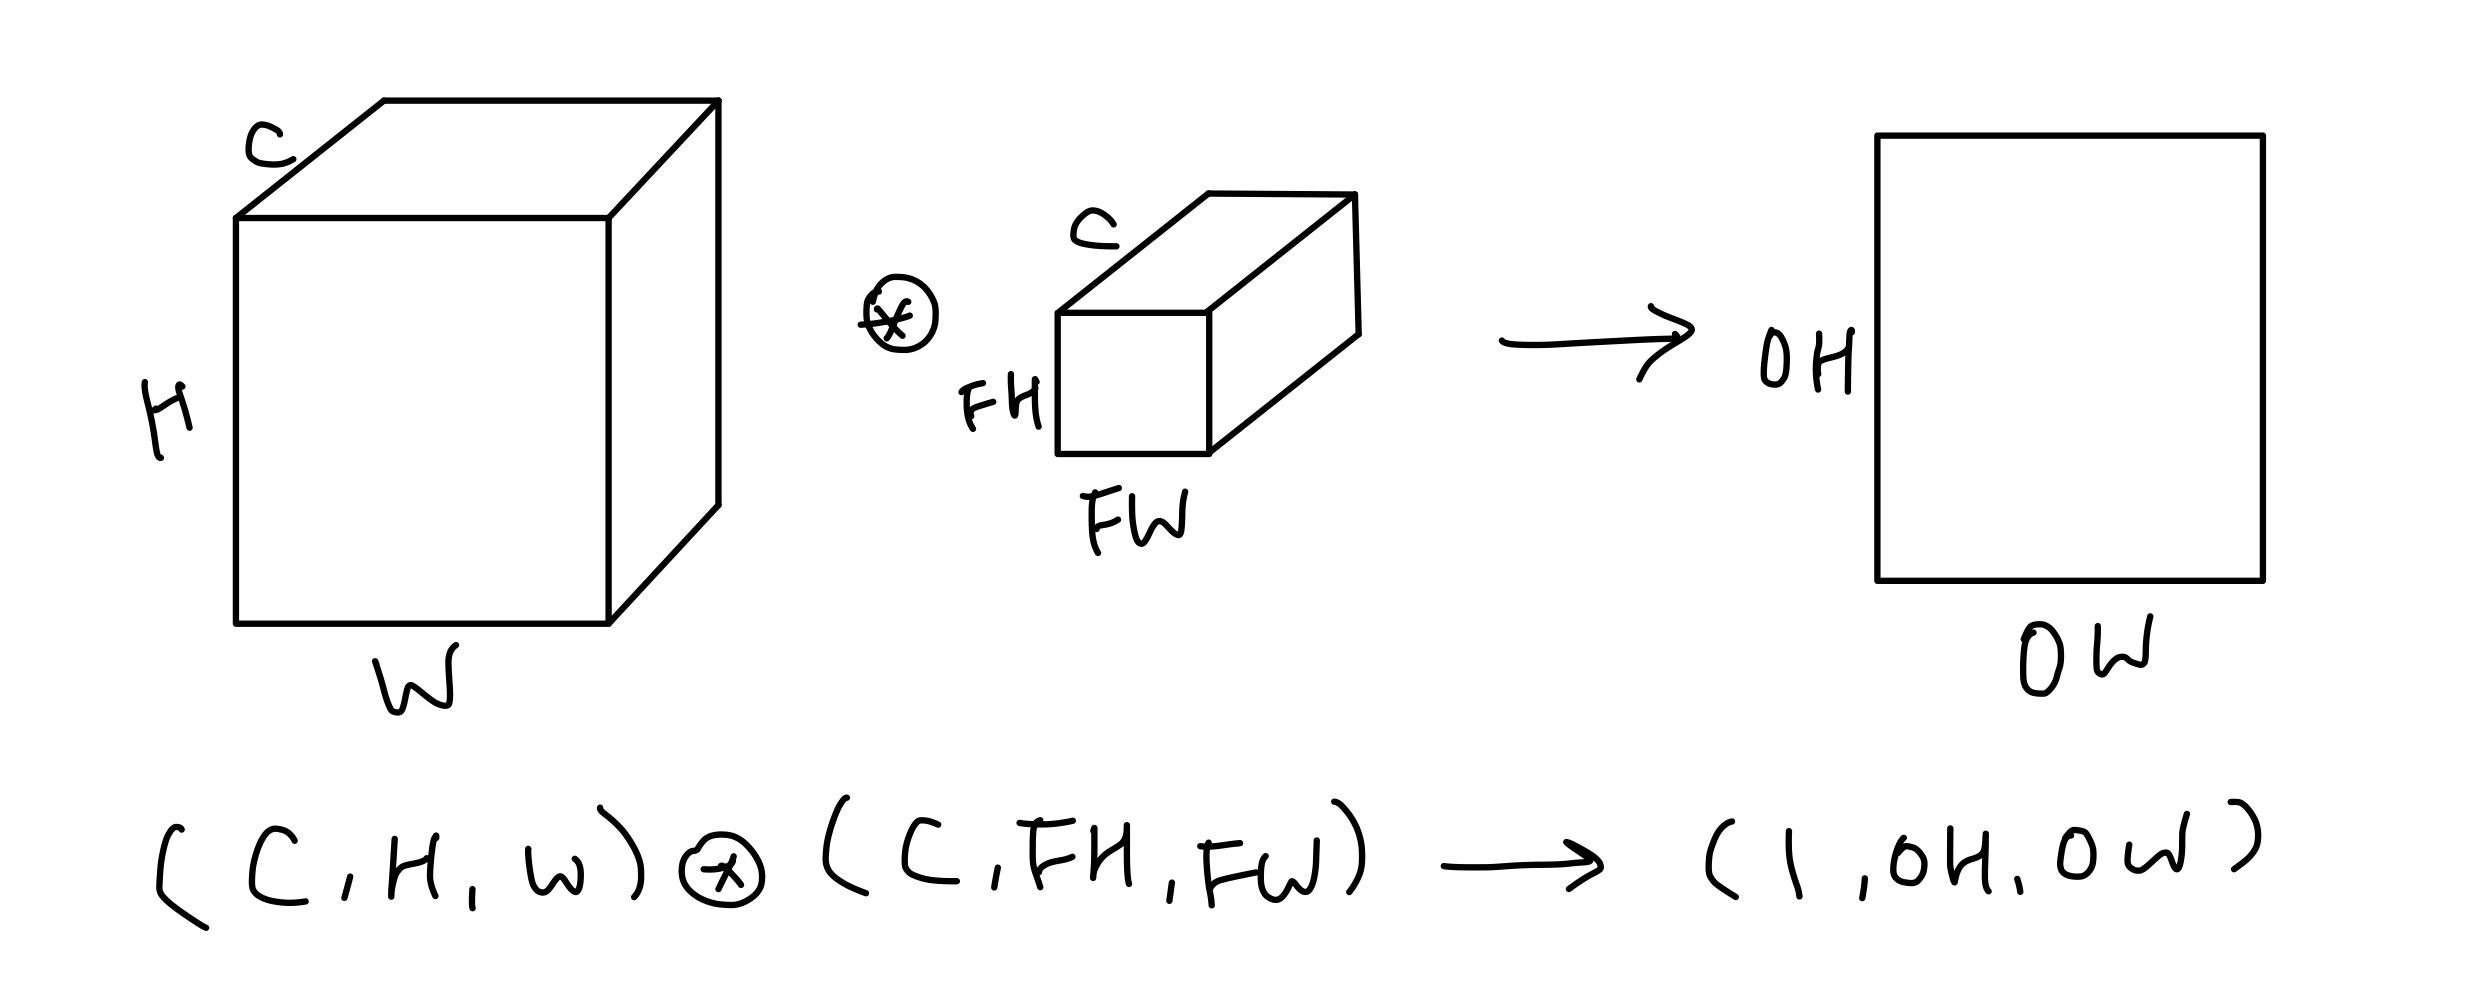 C
H
W
⊛
C
FH
FW
→
OH
OW
(C, H, W) ⊛ (C, FH, FW) → (1, OH, OW)